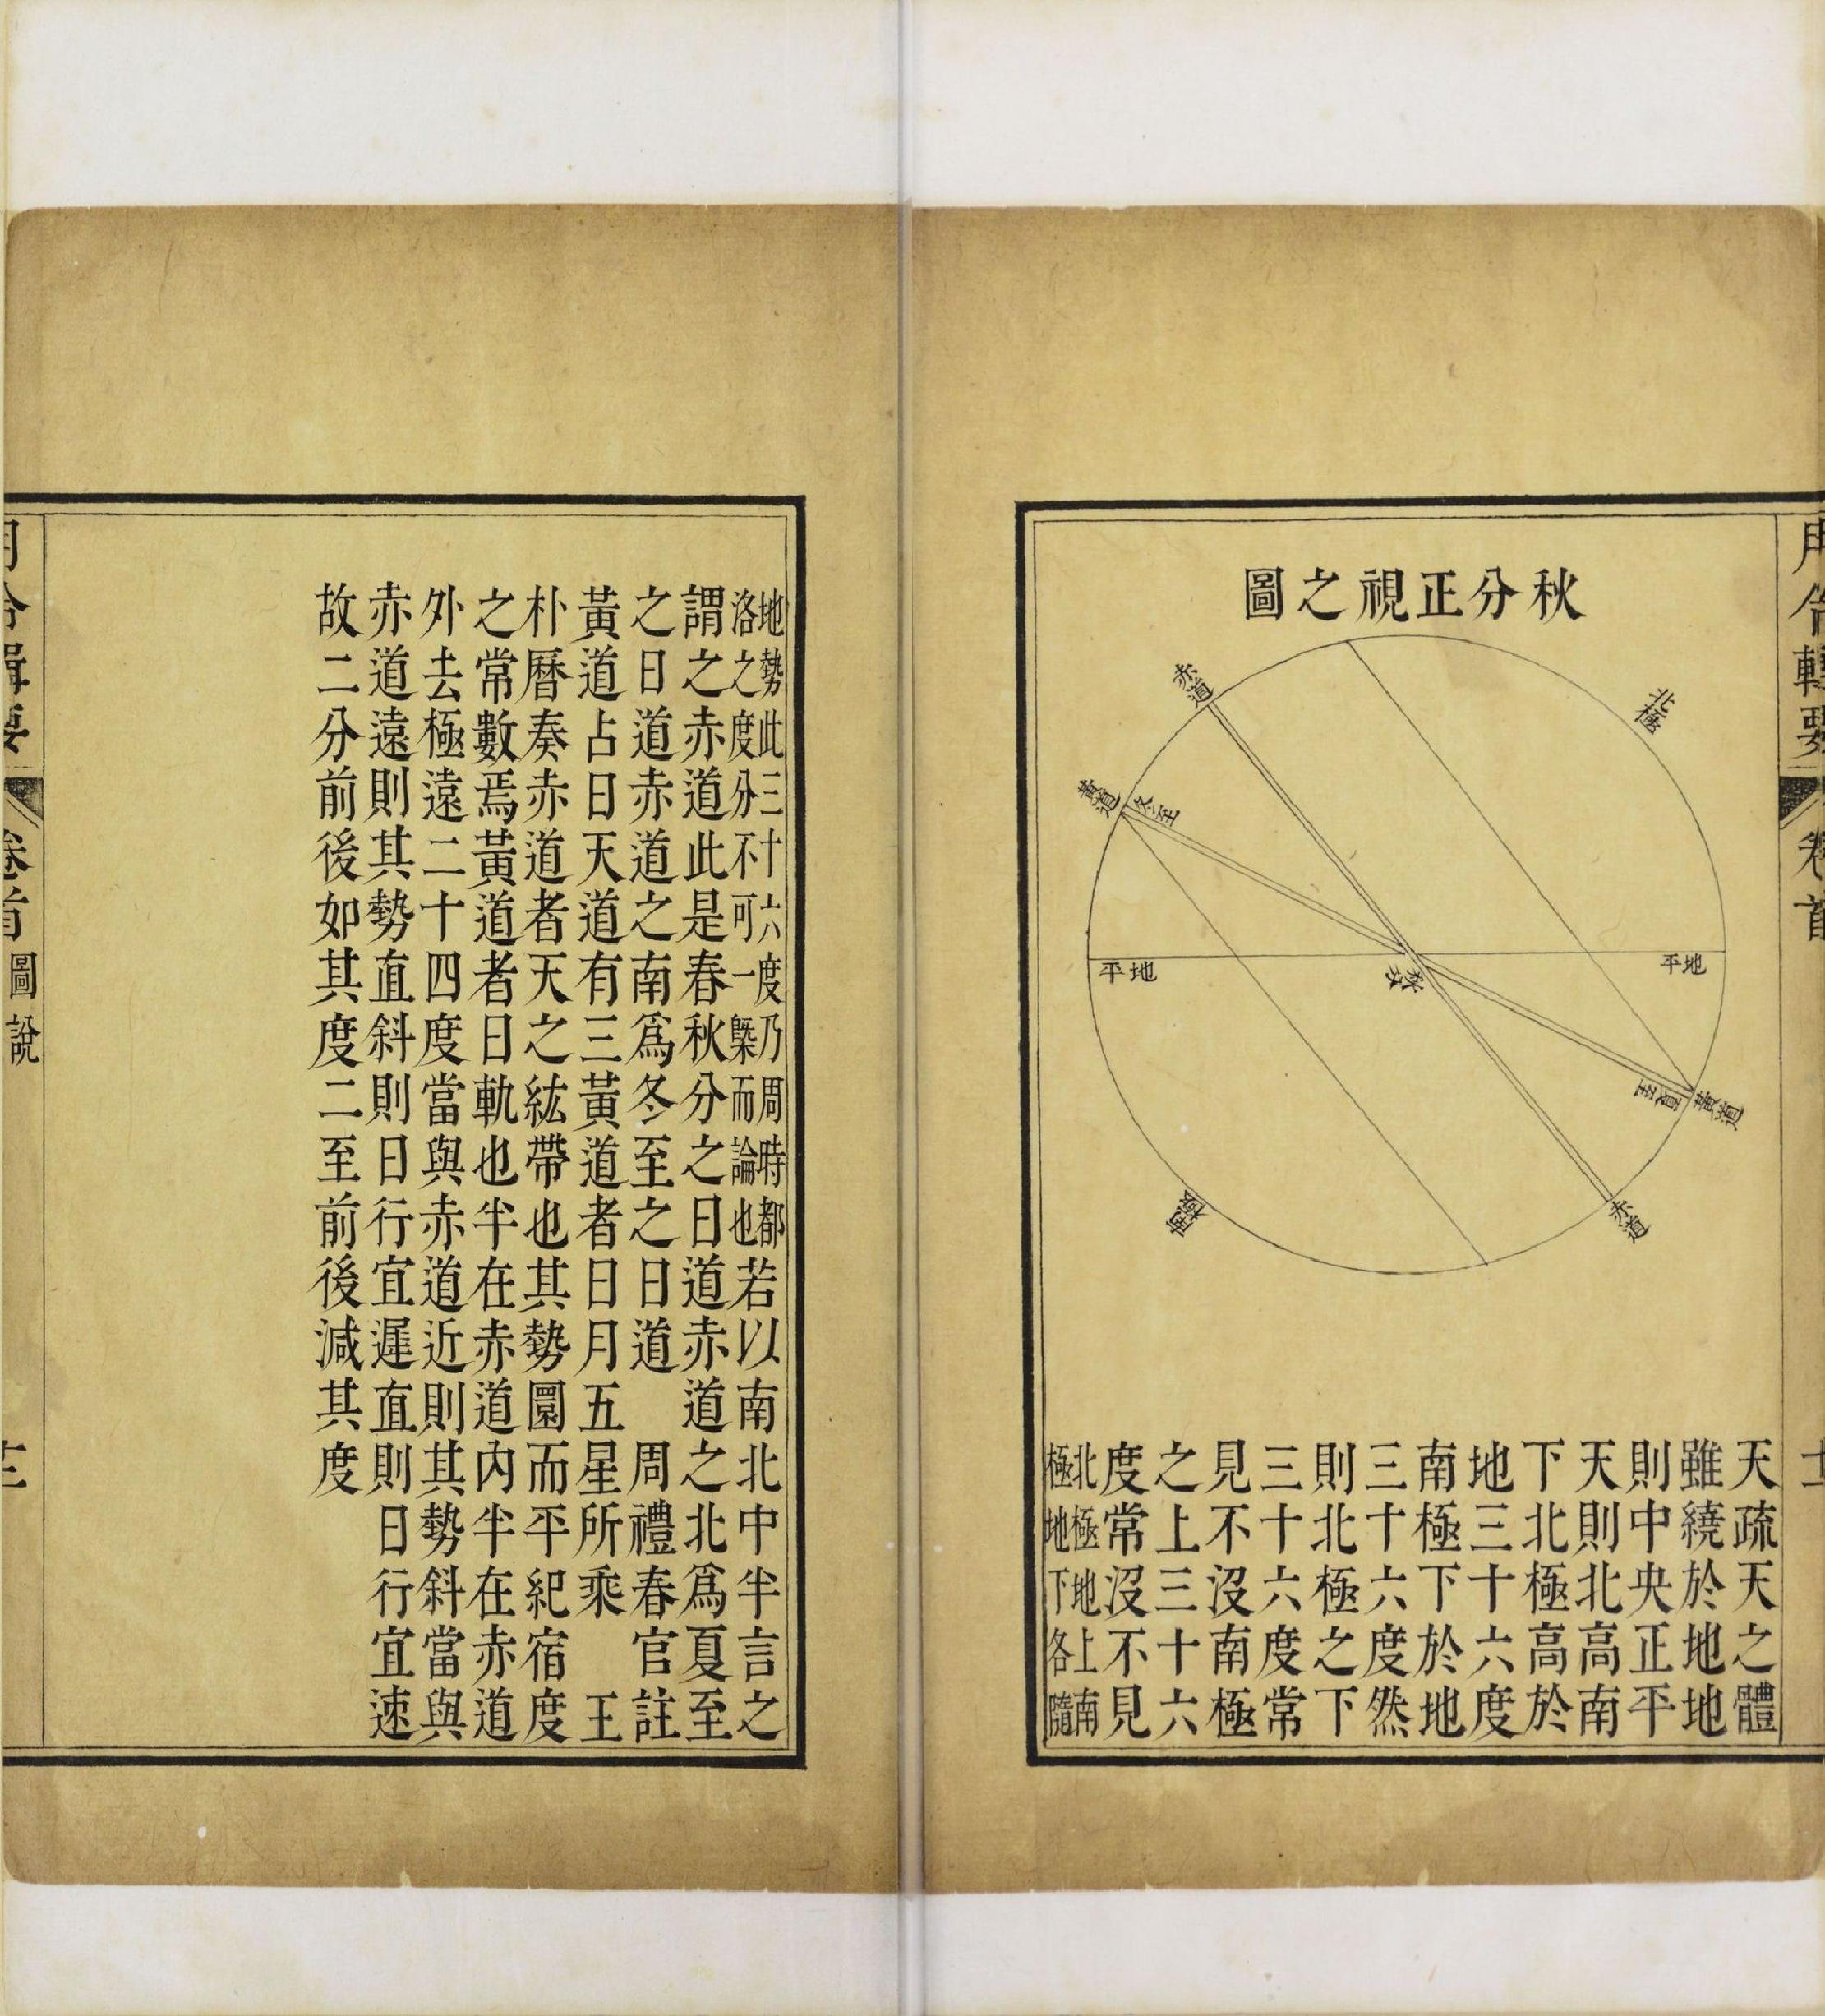 秋分正視之圖
北極
赤道
黃道
冬至
地平
地平
秋分
夏至
黃道
赤道
南極
天疏天之體
雖繞於地地
則中央正平
天則北高南
下北極高於
地三十六度
南極下於地
三十六度然
則北極之下
三十六度常
見不沒南極
之上三十六
度常沒不見
北極地上南
極地下各隨
地勢此三十六度乃周時都
洛之度分不可一槩而論也
若以南北中半言之
謂之赤道此是春秋分之日道赤道之北為夏至
之日道赤道之南為冬至之日道 周禮春官註
黃道占日天道有三黃道者日月五星所乘 王
朴曆奏赤道者天之紘帶也其勢圜而平紀宿度
之常數焉黃道者日軌也半在赤道內半在赤道
外去極遠二十四度當與赤道近則其勢斜當與
赤道遠則其勢直斜則日行宜遲直則日行宜速
故二分前後如其度二至前後減其度
卷首
圖說